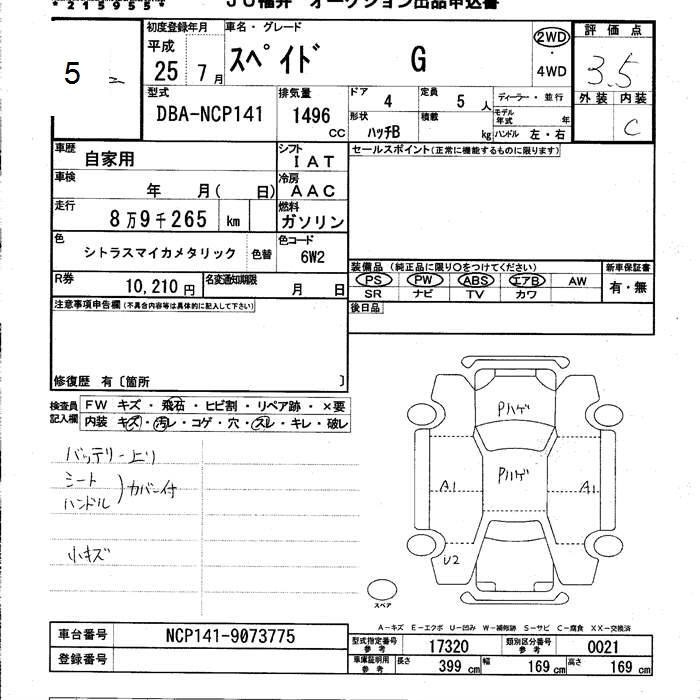 JU福井 オークション出品申込書
初度登録年月 車名・グレード 評価点
平成 25 7月 スペイド G 2WD・4WD 3.5
5
外装 内装 C
型式 排気量 ドア 4 定員 5人 ディーラー・並行
DBA-NCP141 1496cc 形状 ハッチB 積載 kg モデル年式 年 ハンドル 左・右
車歴 自家用 シフト IAT セールスポイント(正常に機能するものに限ります)
車検 年 月( 日) 冷房 AAC
走行 8万9千265 km 燃料 ガソリン
色 シトラスマイカメタリック 色替 色コード 6W2
装備品 (純正品に限り○をつけてください) 新車保証書
PS PW ABS エアB AW 有・無
SR ナビ TV カワ
R券 10,210円 名変通知期限 月 日
後日品
注意事項申告欄(不具合内容等は具体的に記入して下さい)
修復歴 有〔箇所 〕
検査員記入欄 FW キズ・飛石・ヒビ割・リペア跡・×要
内装 キズ・汚レ・コゲ・穴・スレ・キレ・破レ
バッテリー上り
シート
ハンドル )カバー付
小キズ
Pハゲ
Pハゲ
A1 A1
U2
スペア
A-キズ E-エクボ U-凹み W-補修跡 S-サビ C-腐食 XX-交換済
車台番号 NCP141-9073775 型式指定番号 参考 17320 類別区分番号 参考 0021
登録番号 車庫証明用 参考 長さ 399cm 幅 169cm 高さ 169cm